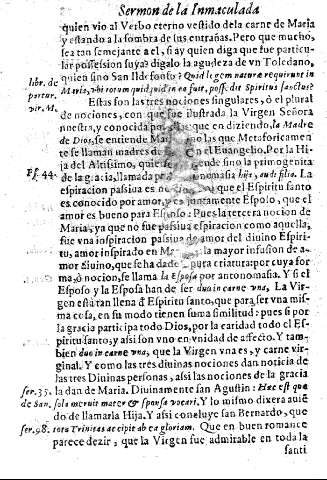 Sermon de la Inmaculada
quien vio al Verbo eterno vestido dela carne de Maria
y estando a la sombra de sus entrañas. Pero que mucho,
sea tan semejante a el, si ay quien diga que fue particu-
lar possession suya? digalo la agudeza de vn Toledano,
libr. de quien sino San Ildefonso? Quid legem naturæ requirunt in
partur. Maria, vbi rerum quid quid in ea fuit, possedit Spiritus sanctus?
vir. M. Estas son las tres nociones singulares, ó el plural
de nociones, con que fue ilustrada la Virgen Señora
nuestra, y conocida por que en diziendo, la Madre
de Dios, se entiende Maria las que Metaforicamen
te se llaman madres de en el Euangelio. Por la Hi-
ja del Altissimo, quie ende sino la primogenita
Ps. 44. de la gracia, llamada por onomasia hija, audi filia. La
espiracion passiua es no que el Espiritu santo
es conocido por amor, y es juntamente Esposo, que el
amor es bueno para Esposo: Pues la tercera nocion de
Maria, ya que no fue passiua espiracion como aquella,
fue vna inspiracion passiua de amor del diuino Espiri-
tu, amor inspirado en Ma la mayor infusion de a-
mor diuino, que se ha dado pura criatura: por cuya for
ma, ò nocion, se llama la Esposa por antonomasia. Y si el
Esposo y la Esposa han de ser duo in carne vna, La Vir-
gen està tan llena d Espiritu santo, que para ser vna mis-
ma cosa, en su modo tienen suma similitud: pues si por
la gracia participa todo Dios, por la caridad todo el Es-
piritu santo, y assi son vno en vnidad de affecto. Y tam-
bien duo in carne vna, que la Virgen vna es, y carne vir-
ginal. Y como las tres diuinas nociones dan noticia de
las tres Diuinas personas, assi las nociones de la gracia
ser. 35. la dan de Maria. Diuinamente san Agustin: Hæc est quæ
de San. sola meruit mater & sponsa vocari. Y lo mismo dixera auie
do de llamarla Hija. Y assi concluye san Bernardo, que
ser. 98. tota Trinitas accipit ab ea gloriam. Que en buen romance
parece dezir, que la Virgen fue admirable en toda la
santi